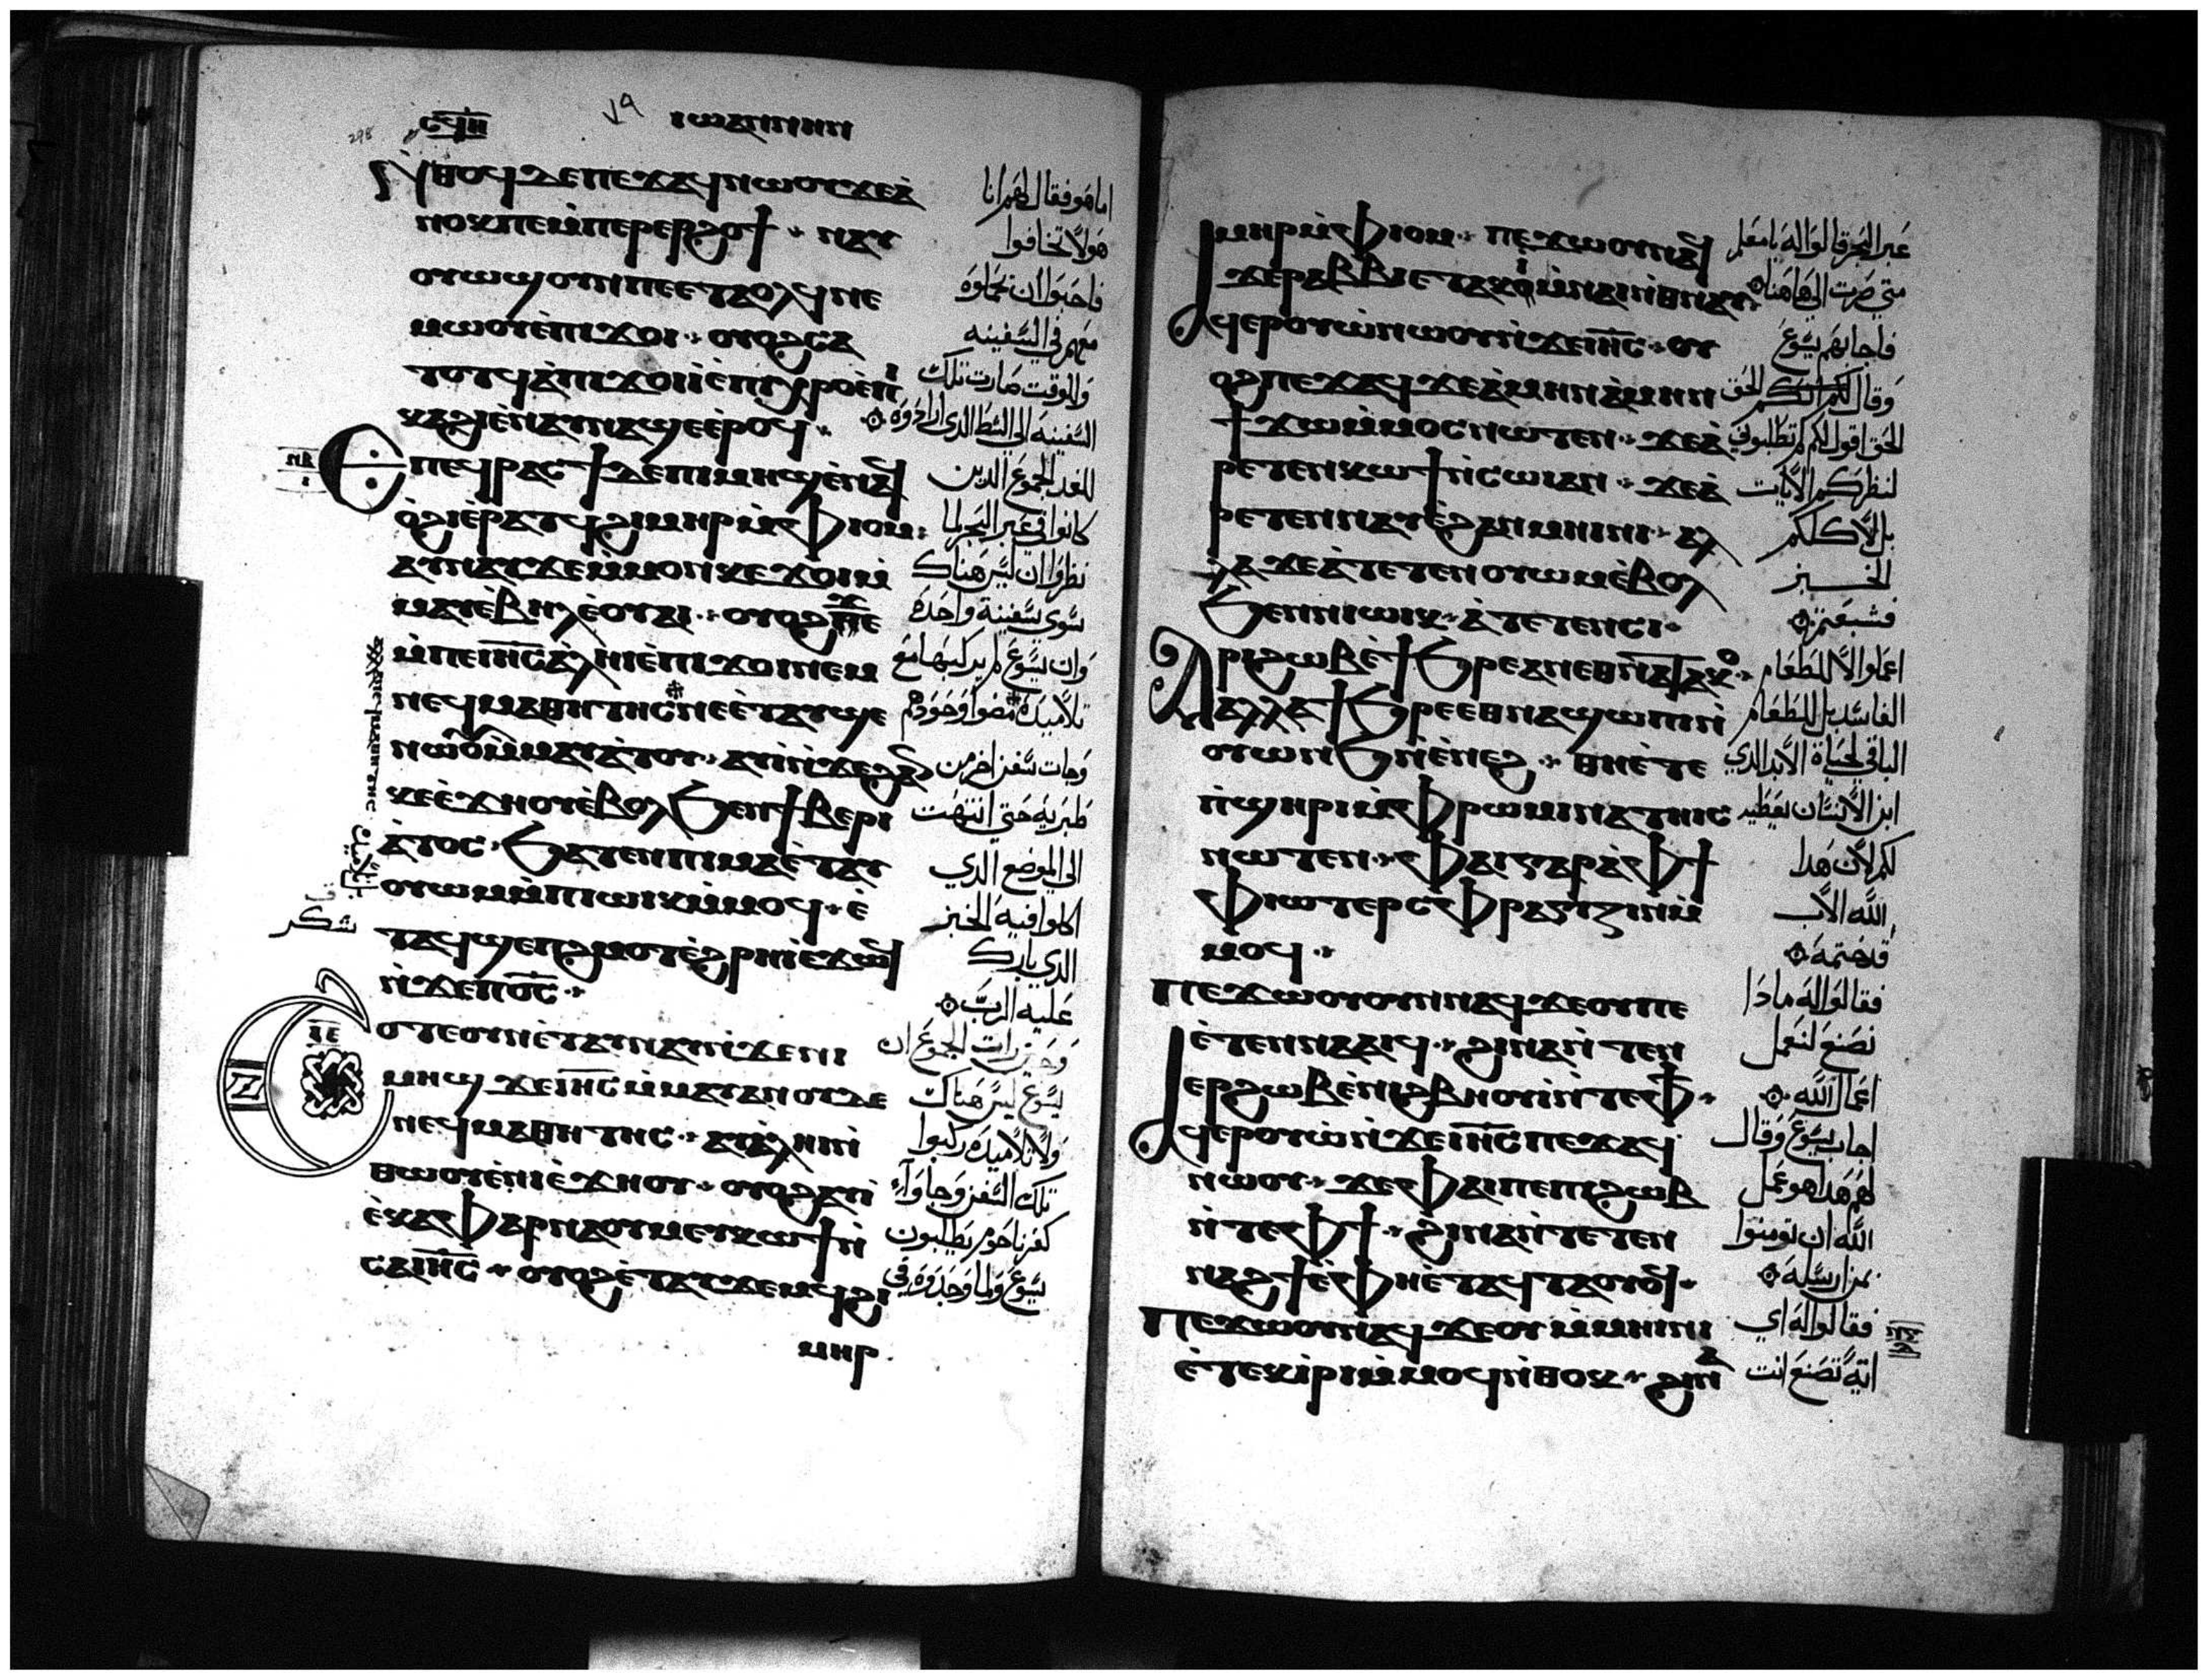 ⲥϥⲏ
ⲓⲱⲁⲛⲛⲏⲛ
ⲛ̀ⲑⲟϥ ⲇⲉ ⲡⲉϫⲁϥ ⲛⲱⲟⲩ ϫⲉ ⲁ̀
ⲛⲟⲕ ⲡⲉ ⲙ̀ⲡⲉⲣⲉⲣϩⲟϯ ⁘ ⲛⲁⲩ
ⲟⲩⲱϣ ⲟⲩⲛ ⲡⲉ ⲉⲧⲁⲟⲗϥ ⲛⲉ
ⲙⲱⲟⲩ ⲉ̀ⲡⲓϫⲟⲓ ⁘ ⲟⲩⲟϩ ⲥⲁ
ⲧⲟⲧϥ ⲁ̀ⲡⲓϫⲟⲓ ⲓ̀ ⲉ̀ⲡⲓⲭⲣⲟ ⲉ̀ⲡⲓ
ⲕⲁϩⲓ ⲉ̀ⲛⲁⲩⲛⲁϣⲉ ⲉ̀ⲣⲟϥ ⁘
ⲉⲡⲉϥⲣⲁⲥϯ ⲇⲉ ⲡⲓⲙⲏϣ ⲉ̀ⲛⲁϥ
ⲟ̀ϩⲓ ⲉ̀ⲣⲁⲧϥ ϩⲓⲙⲏⲣ ⲙ̀ⲫⲓⲟⲙ ⁘
ⲁⲩⲛⲁⲩ ϫⲉ ⲙ̀ⲙⲟⲛ ⲕⲉϫⲟⲓ ⲙ̀
ⲙⲁⲩ ⲉ̀ⲃⲏⲗ ⲉ̀ⲟⲩⲁⲓ ⁘ ⲟⲩⲟϩ ϫⲉ
ⲙ̀ⲡⲉ ⲓⲏ̅ⲥ̅ ⲁ̀ⲗⲏⲓ ⲉ̀ⲡⲓϫⲟⲓ ⲛⲉⲙ
ⲛⲉϥⲙⲁⲑⲏⲧⲏⲥ ⲛⲉ ⲉ̀ⲧⲁⲩϣⲉ
ⲛⲱⲟⲩ ⲙ̀ⲙⲁⲩⲁ̀ⲧⲟⲩ ⁘ ⲁⲩⲓ̀ ⲛ̀ϫⲉ ϩⲁⲛ
ⲕⲉⲉ̀ϫⲏⲟⲩ ⲉ̀ⲃⲟⲗ ϧⲉⲛ ϯⲃⲉⲣⲓ
ⲁ̀ⲇⲟⲥ ⁘ ϧⲁⲧⲉⲛ ⲡⲓⲙⲁ ⲉ̀ⲧⲁⲩ
ⲟⲩⲱⲙ ⲙ̀ⲡⲓⲱⲓⲕ ⲙ̀ⲙⲟϥ ⁘ ⲉ̀
ⲧⲁϥϣⲉⲡϩⲙⲟⲧ ⲉ̀ϩⲣⲏⲓ ⲉ̀ϫⲱϥ
ⲛ̀ϫⲉ ⲡⲟ̅ⲥ̅ ⁘
ϩⲟⲧⲉ ⲟⲩⲛ ⲉ̀ⲧⲁⲩⲛⲁⲩ ⲛ̀ϫⲉ ⲛⲓ
ⲙⲏϣ ϫⲉ ⲓⲏ̅ⲥ̅ ⲙ̀ⲙⲁⲩ ⲁⲛ ⲟⲩⲇⲉ
ⲛⲉϥⲙⲁⲑⲏⲧⲏⲥ ⁘ ⲁⲩⲁ̀ⲗⲏⲓ ⲛ̀
ⲑⲱⲟⲩ ⲉ̀ⲛⲓⲉ̀ϫⲏⲟⲩ ⁘ ⲟⲩⲟϩ ⲁⲩⲓ̀
ⲉ̀ⲕⲁⲫⲁⲣⲛⲁⲟⲩⲙ ⲉⲩⲕⲱϯ ⲛ̀
ⲥⲁ ⲓⲏ̅ⲥ̅ ⁘ ⲟⲩⲟϩ ⲉ̀ⲧⲁⲩϫⲉⲙϥ ϩⲓ
ⲙⲏⲣ
اما هو فقال لهم انا
هو لا تخافوا
فاحبوا ان يحملوه
معهم في السفينه
وللوقت صارت تلك
السفينه الي الشط الذي ارادوه
للغد الجموع الذين
كانوا في عبر البحر لما
نظروا ان ليس هناك
سوي سفينة واحده
وان يسوع لم يركبها مع
تلاميذه مضوا وحدهم
وجات سفن اخر من
طبريه حتي انتهت
الي الموضع الذي
اكلوا فيه الخبز
الذي بارك
شكر
عليه الرب
وحين رات الجموع ان
يسوع ليس هناك
ولا تلاميذه ركبوا
تلك السفن وجاوا
كفرناحوم يطلبون
يسوع ولما وجدوه في
ⲙⲏⲣ ⲙ̀ⲫⲓⲟⲙ ⁘ ⲡⲉϫⲱⲟⲩ ⲛⲁϥ
ϫⲉ ⲣⲁⲃⲃⲓ ⲉⲧⲁⲕⲓ̀ ⲙ̀ⲛⲁⲓ ⲛ̀ⲑⲛⲁⲩ ⁘
ⲁϥⲉⲣⲟⲩⲱ̀ ⲛⲱⲟⲩ ⲛ̀ϫⲉ ⲓⲏ̅ⲥ̅ ⁘ ⲟⲩ
ⲟϩ ⲡⲉϫⲁϥ ϫⲉ ⲁ̀ⲙⲏⲛ ⲁ̀ⲙⲏⲛ
ϯϫⲱ ⲙ̀ⲙⲟⲥ ⲛⲱⲧⲉⲛ ⁘ ϫⲉ ⲁ̀
ⲣⲉⲧⲉⲛⲕⲱϯ ⲛ̀ⲥⲱⲓ ⲁⲛ ⁘ ϫⲉ ⲁ̀
ⲣⲉⲧⲉⲛⲛⲁⲩ ⲉ̀ϩⲁⲛⲙⲏⲓⲛⲓ ⁘ ⲁⲗ
ⲗⲁ ϫⲉ ⲁ̀ⲧⲉⲧⲉⲛⲟⲩⲱⲙ ⲉ̀ⲃⲟⲗ
ϧⲉⲛ ⲛⲓⲱⲓⲕ ⁘ ⲁ̀ⲧⲉⲧⲉⲛⲥⲓ ⁘
ⲁⲣⲓϩⲱⲃ ⲉ̀ϯϧⲣⲉ ⲁⲛ ⲉⲑⲛⲁⲧⲁⲕⲟ ⁘
ⲁⲗⲗⲁ ϯϧⲣⲉ ⲉⲑⲛⲁϣⲱⲡⲓ ⲛ̀
ⲟⲩⲱⲛϧ ⲛ̀ⲉ̀ⲛⲉϩ ⁘ ⲑⲏ ⲉ̀ⲧⲉ
ⲡ̀ϣⲏⲣⲓ ⲙ̀ⲫⲣⲱⲙⲓ ⲛⲁⲧⲏⲓⲥ
ⲛⲱⲧⲉⲛ ⁘ ⲫⲁⲓ ⲅⲁⲣ ⲁ̀ⲫϯ
ⲫⲓⲱⲧ ⲉⲣⲥⲫⲣⲁⲅⲓⲍⲓⲛ ⲙ̀
ⲙⲟϥ ⁘
ⲡⲉϫⲱⲟⲩ ⲟⲩⲛ ⲛⲁϥ ϫⲉ ⲟⲩ ⲡⲉ
ⲉ̀ⲧⲉⲛⲛⲁⲁⲓϥ ⁘ ϩⲓⲛⲁ ⲛ̀ⲧⲉⲛ
ⲉⲣϩⲱⲃ ⲉ̀ⲛⲓϩⲃⲏⲟⲩⲓ̀ ⲛ̀ⲧⲉ ⲫϯ ⁘
ⲁϥⲉⲣⲟⲩⲱ̀ ⲛ̀ϫⲉ ⲓⲏ̅ⲥ̅ ⲡⲉϫⲁϥ
ⲛⲱⲟⲩ ⁘ ϫⲉ ⲫⲁⲓ ⲡⲉ ⲡⲓϩⲱⲃ
ⲛ̀ⲧⲉ ⲫϯ ⁘ ϩⲓⲛⲁ ⲛ̀ⲧⲉⲧⲉⲛ
ⲛⲁϩϯ ⲉ̀ⲫⲏ ⲉ̀ⲧⲁϥⲧⲁⲟⲩⲟϥ ⁘
ⲡⲉϫⲱⲟⲩ ⲛⲁϥ ϫⲉ ⲟⲩ ⲙ̀ⲙⲏⲓⲛⲓ
ⲉ̀ⲧⲉⲕⲓ̀ⲣⲓ ⲙ̀ⲙⲟϥ ⲛ̀ⲑⲟⲕ ⁘ ϩⲓⲛⲁ
عبر البحر قالوا له يا معلم
متي صرت الي هاهنا
فاجابهم يسوع
وقال لكم الحق
الحق اقول لكم لم تطلبوني
لنظركم الايات
بل لاكلكم
الخبز
فشبعتم
اعملوا لا للطعام
الفاسد بل للطعام
الباقي لحياة الابد الذي
ابن الانسان يعطيه
لكم لان هذا
الله الاب
قد ختمه
فقالوا له ماذا
نصنع لنعمل
اعمال الله
اجاب يسوع وقال
لهم هذا هو عمل
الله ان تومنوا
بمن ارسله
فقالوا له اي
اية تصنع انت